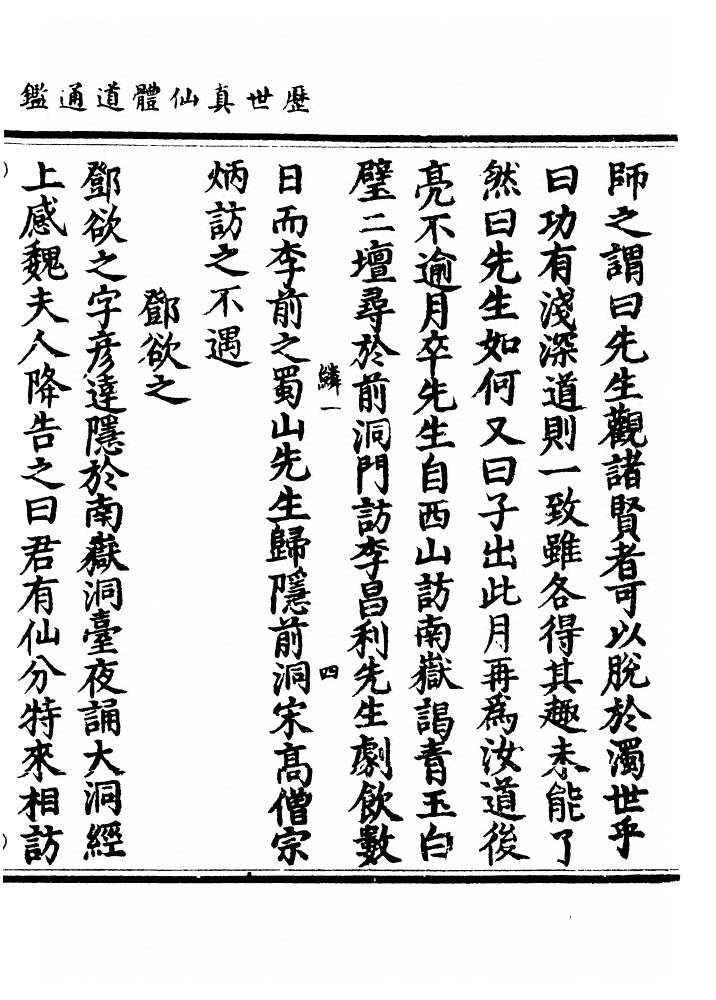 歷世真仙體道通鑑
師之謂曰先生觀諸賢者可以脫於濁世乎
曰功有淺深道則一致雖各得其趣未能了
然曰先生如何又曰子出此月再為汝道後
亮不逾月卒先生自西山訪南嶽謁青玉白
璧二壇尋於前洞門訪李昌利先生劇飲數
鱗一
四
日而李前之蜀山先生歸隱前洞宋高僧宗
炳訪之不遇
鄧欲之
鄧欲之字彥達隱於南嶽洞臺夜誦大洞經
上感魏夫人降告之曰君有仙分特來相訪